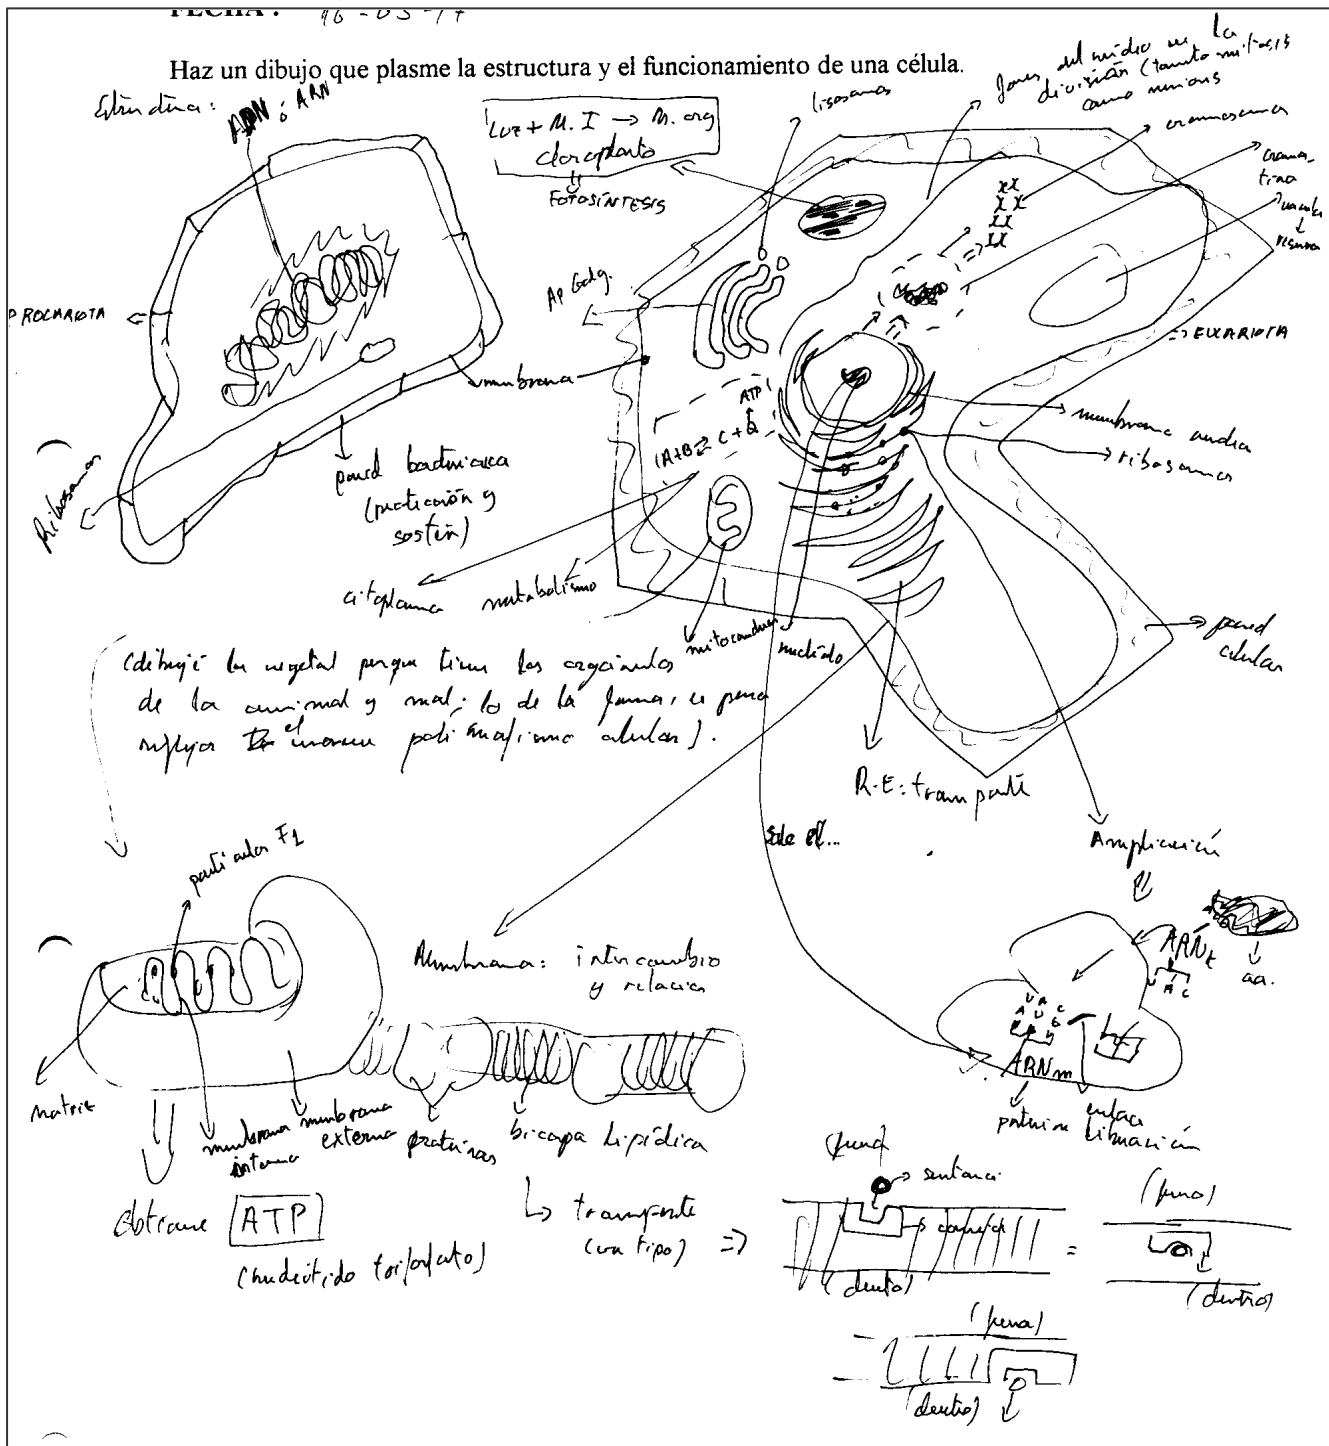 FECHA: 16-05-17
Haz un dibujo que plasme la estructura y el funcionamiento de una célula.
Estructura:
ADN ó ARN
PROCARIOTA
Ribosomas
pared bacteriana
(protección y
sostén)
membrana
Luz + M. I → M. org
cloroplasto
FOTOSÍNTESIS
lisosomas
división (tanto mitosis
como meiosis
cromosomas
croma-
tina
vacuola
reserva
⇒ EUCARIOTA
Ap Golg.
ATP
(A+B ⇄ C + Q
membrana
ribosomas
pared
celular
citoplasma
metabolismo
mitocondria
nucléolo
(dibujé la vegetal porque tiene los orgánulos
de la animal y más; lo de la forma, es para
reflejar el polimorfismo celular).
R.E: transporte
Sale el...
Ampliación
partículas F1
matriz
membrana
interna
membrana
externa
obtiene ATP
(nucleótido trifosfato)
Membrana: intercambio
y relación
proteínas
bicapa lipídica
↳ transporte
(un tipo) ⇒
ARNt
U A C
aa.
U A C
A U G
ARNm
proteína
enlace
(fuera)
sustancia
(dentro)
=
(fuera)
(dentro)
(fuera)
(dentro)